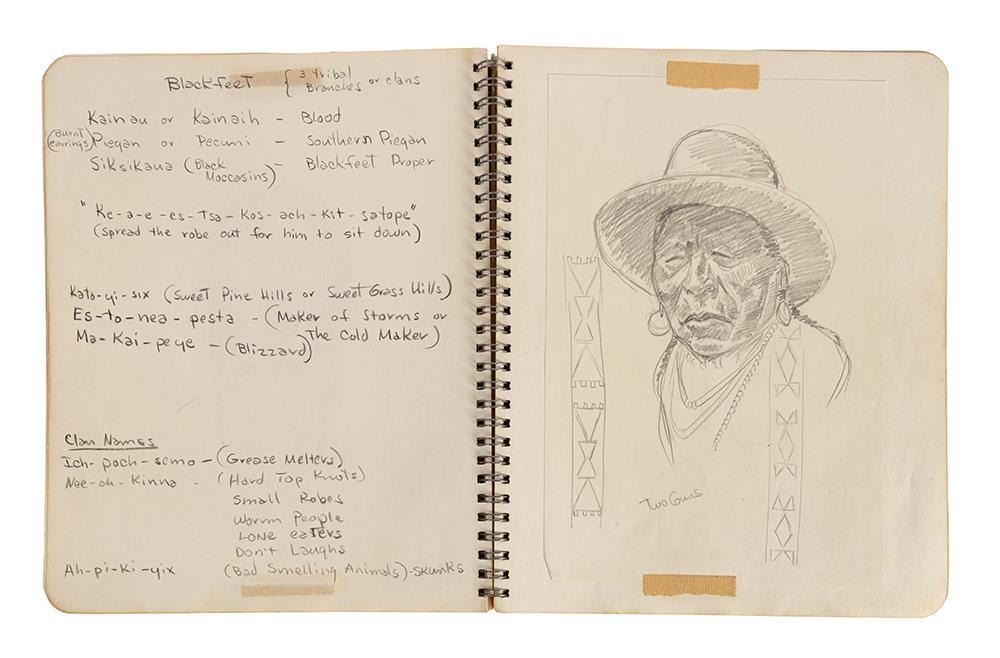 Blackfeet { 3 tribal Branches or clans
Kainau or Kainaih - Blood
(Burnt earrings) Piegan or Pecumi - Southern Piegan
Siksikaua (Black Moccasins) - Blackfeet Proper
"Ke-a-e-es-Tsa-Kos-ach-Kit-satope"
(spread the robe out for him to sit down)
Kato-yi-six (Sweet Pine Hills or Sweet Grass Hills)
Es-to-nea-pesta - (Maker of Storms or The Cold Maker)
Ma-Kai-peye - (Blizzard)
Clan Names
Ich-poch-semo - (Grease Melters)
Nee-oh-Kinna - (Hard Top Knots)
Small Robes
Worm People
Lone eaTers
Don't Laughs
Ah-pi-Ki-yix (Bad Smelling Animals)-SKUNKS
Two Guns